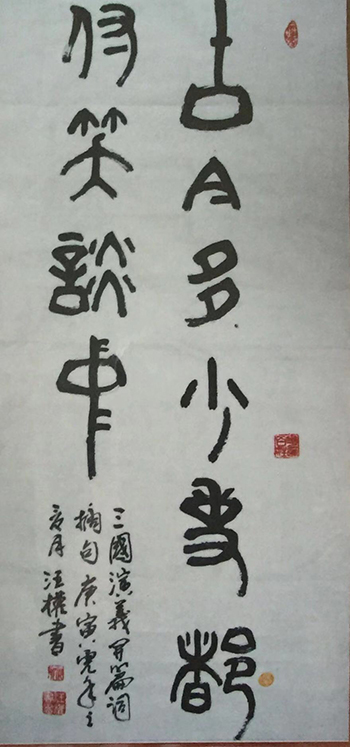 古今多少事都
付笑談中
三國演義开篇词
摘句庚寅虎年之
月汪權書